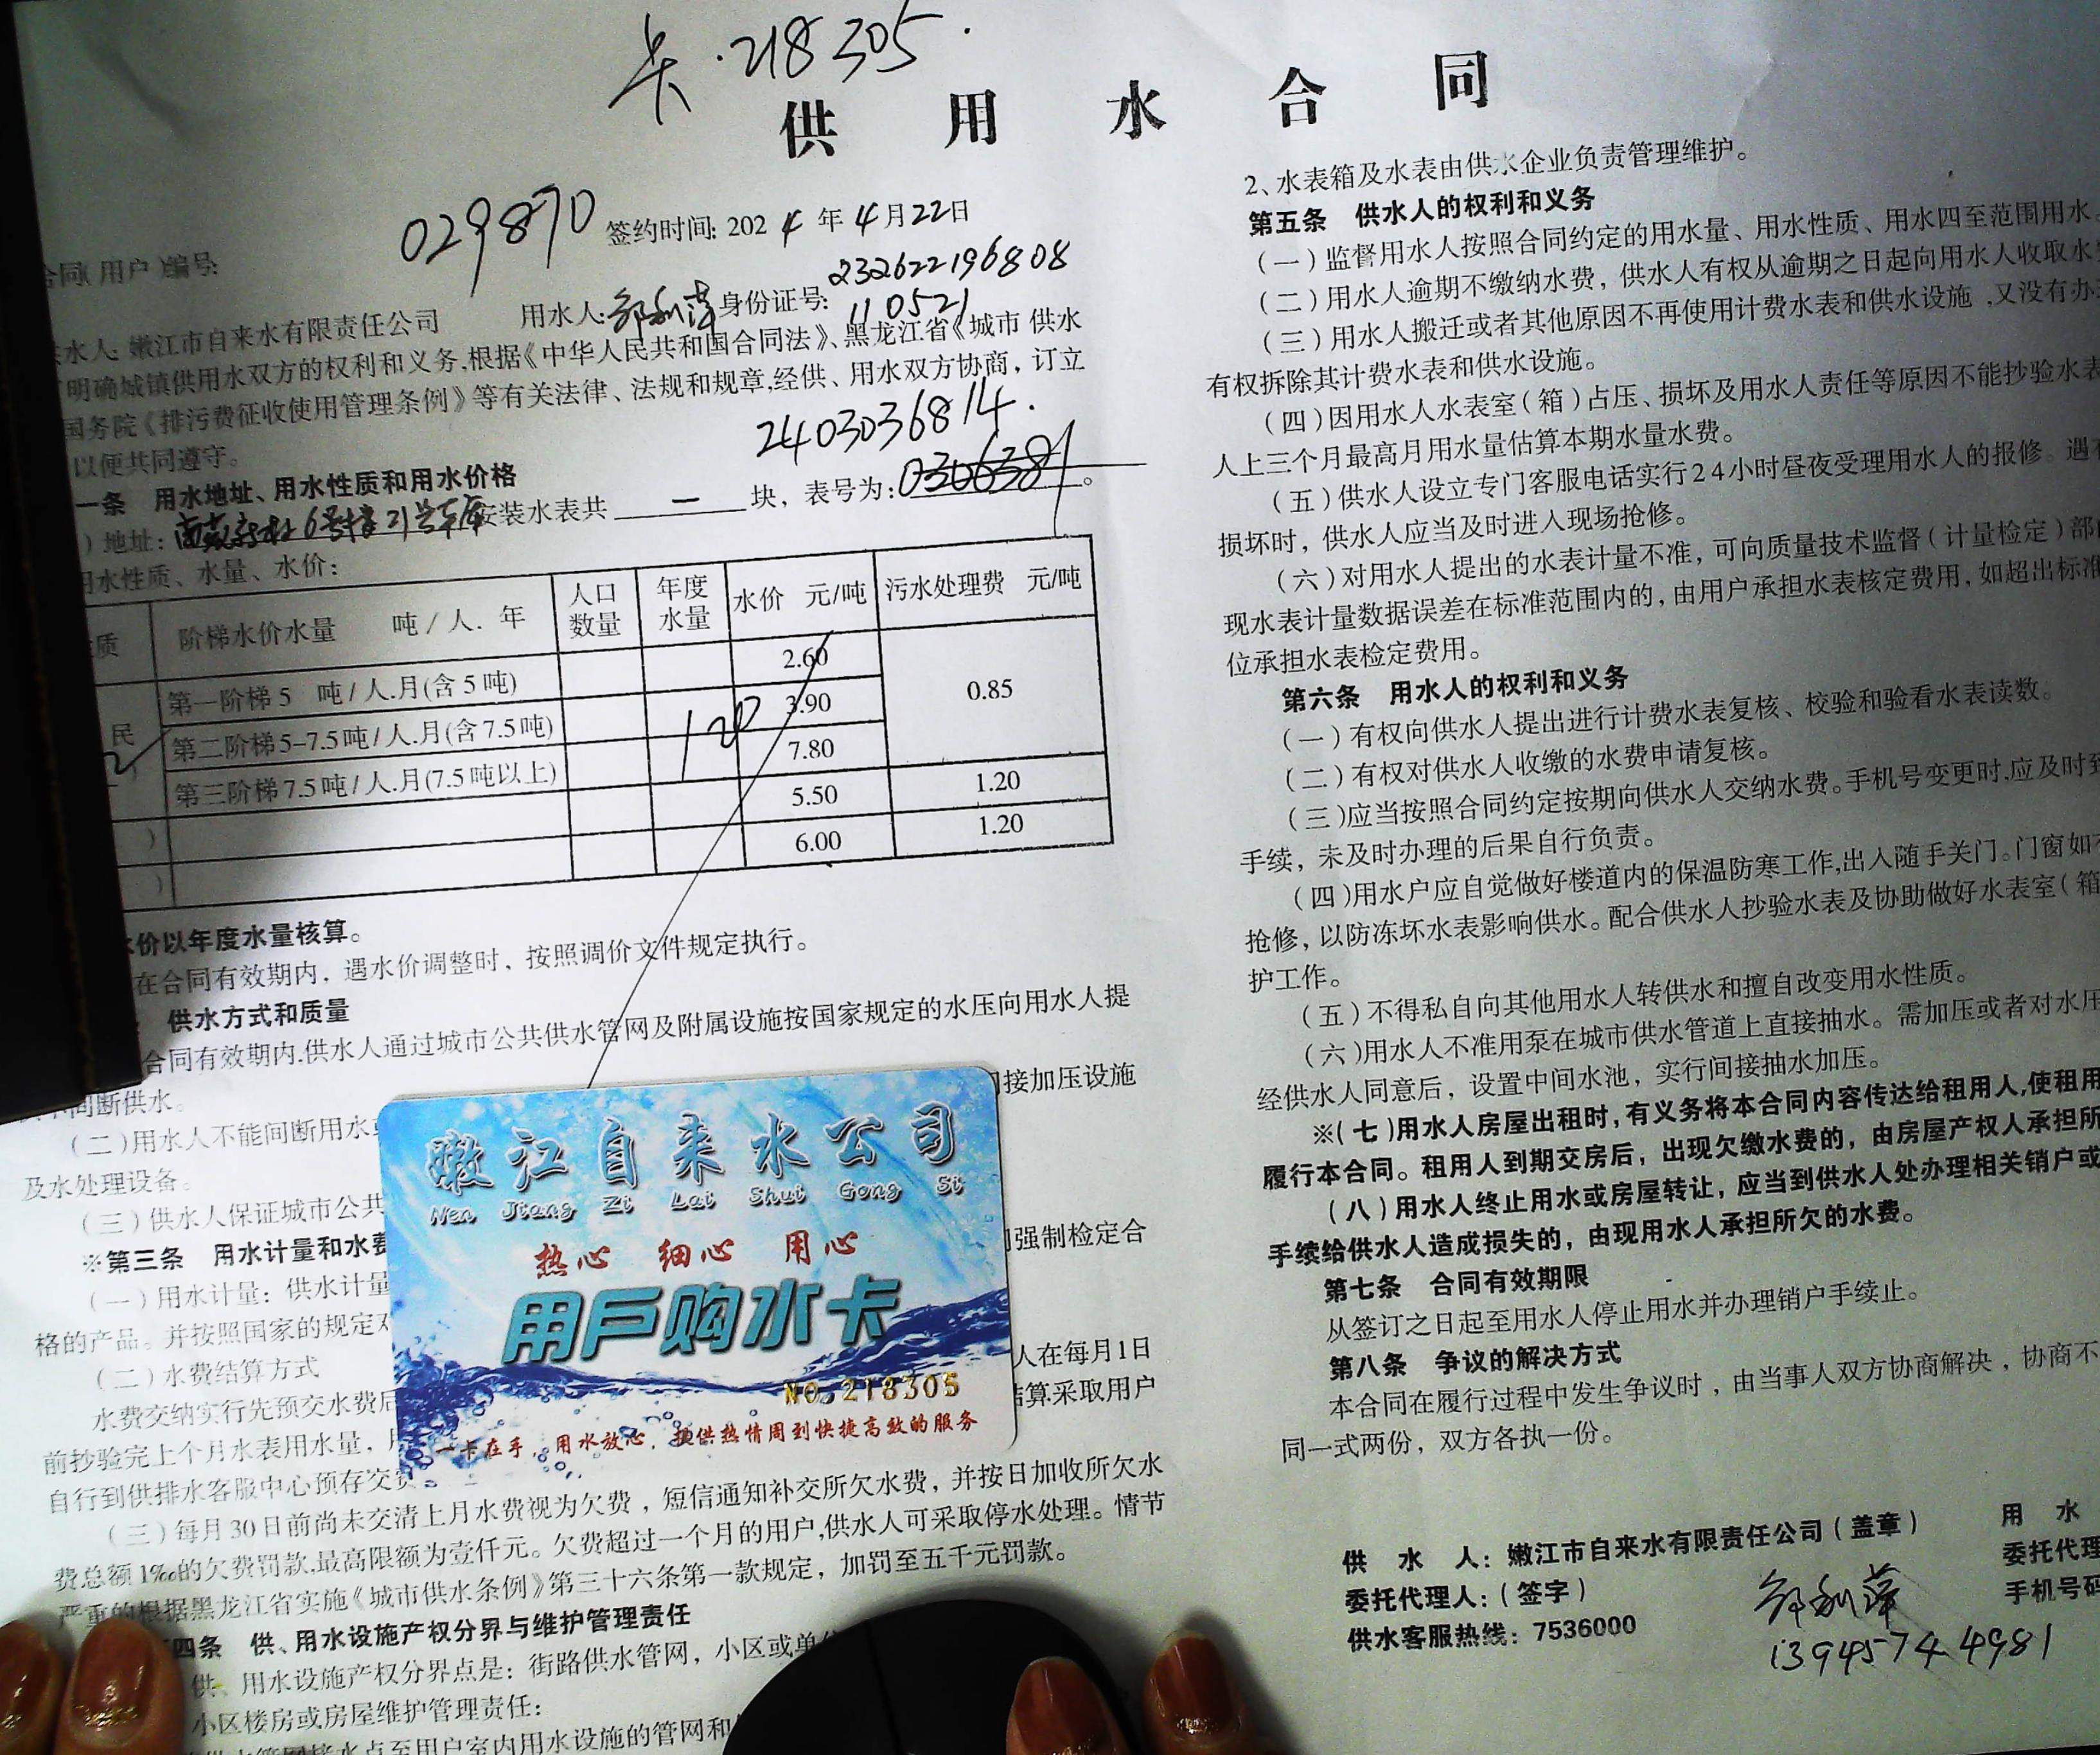 卡·218305.
供用水合同
合同(用户)编号: 029870 签约时间: 2024年4月22日
供水人: 嫩江市自来水有限责任公司 用水人: 邹利萍 身份证号: 232622196808110521
明确城镇供用水双方的权利和义务,根据《中华人民共和国合同法》、黑龙江省《城市 供水
国务院《排污费征收使用管理条例》等有关法律、法规和规章,经供、用水双方协商，订立
以便共同遵守。
2403036814.
一条 用水地址、用水性质和用水价格
）地址: 6号楼21号车库 安装水表共 一 块，表号为: 0306381。
用水性质、水量、水价:
质 阶梯水价水量 吨/人.年 人口数量 年度水量 水价 元/吨 污水处理费 元/吨
民 第一阶梯5 吨/人.月(含5吨) 2.60 0.85
第二阶梯5-7.5吨/人.月(含7.5吨) 120 3.90
第三阶梯7.5吨/人.月(7.5吨以上) 7.80
) 5.50 1.20
) 6.00 1.20
水价以年度水量核算。
在合同有效期内，遇水价调整时，按照调价文件规定执行。
供水方式和质量
合同有效期内,供水人通过城市公共供水管网及附属设施按国家规定的水压向用水人提
间断供水。
(二)用水人不能间断用水 间接加压设施
及水处理设备。
(三)供水人保证城市公共
※第三条 用水计量和水费
(一)用水计量: 供水计量 强制检定合
格的产品。并按照国家的规定对
(二)水费结算方式
水费交纳实行先预交水费后 人在每月1日
前抄验完上个月水表用水量， 结算采取用户
自行到供排水客服中心预存交费
(三)每月30日前尚未交清上月水费视为欠费，短信通知补交所欠水费，并按日加收所欠水
费总额1‰的欠费罚款,最高限额为壹仟元。欠费超过一个月的用户,供水人可采取停水处理。情节
严重的根据黑龙江省实施《城市供水条例》第三十六条第一款规定，加罚至五千元罚款。
四条 供、用水设施产权分界与维护管理责任
供、用水设施产权分界点是: 街路供水管网，小区或单位
小区楼房或房屋维护管理责任:
供水管网接水点至用户室内用水设施的管网和
嫩江自来水公司
Nen Jiang Zi Lai Shui Gong Si
热心 细心 用心
用户购水卡
NO.218305
一卡在手，用水放心，提供热情周到快捷高效的服务
2、水表箱及水表由供水企业负责管理维护。
第五条 供水人的权利和义务
(一)监督用水人按照合同约定的用水量、用水性质、用水四至范围用水。
(二)用水人逾期不缴纳水费，供水人有权从逾期之日起向用水人收取水
(三)用水人搬迁或者其他原因不再使用计费水表和供水设施,又没有办
有权拆除其计费水表和供水设施。
(四)因用水人水表室(箱)占压、损坏及用水人责任等原因不能抄验水表
人上三个月最高月用水量估算本期水量水费。
(五)供水人设立专门客服电话实行24小时昼夜受理用水人的报修。遇
损坏时，供水人应当及时进入现场抢修。
(六)对用水人提出的水表计量不准，可向质量技术监督(计量检定)部
现水表计量数据误差在标准范围内的，由用户承担水表核定费用，如超出标准
位承担水表检定费用。
第六条 用水人的权利和义务
(一)有权向供水人提出进行计费水表复核、校验和验看水表读数。
(二)有权对供水人收缴的水费申请复核。
(三)应当按照合同约定按期向供水人交纳水费。手机号变更时,应及时到
手续，未及时办理的后果自行负责。
(四)用水户应自觉做好楼道内的保温防寒工作,出入随手关门。门窗如
抢修，以防冻坏水表影响供水。配合供水人抄验水表及协助做好水表室(箱
护工作。
(五)不得私自向其他用水人转供水和擅自改变用水性质。
(六)用水人不准用泵在城市供水管道上直接抽水。需加压或者对水压
经供水人同意后，设置中间水池，实行间接抽水加压。
※(七)用水人房屋出租时,有义务将本合同内容传达给租用人,使租用
履行本合同。租用人到期交房后，出现欠缴水费的，由房屋产权人承担所
(八)用水人终止用水或房屋转让，应当到供水人处办理相关销户或
手续给供水人造成损失的，由现用水人承担所欠的水费。
第七条 合同有效期限
从签订之日起至用水人停止用水并办理销户手续止。
第八条 争议的解决方式
本合同在履行过程中发生争议时，由当事人双方协商解决，协商不
同一式两份，双方各执一份。
供 水 人: 嫩江市自来水有限责任公司(盖章) 用 水
委托代理人:(签字) 邹利萍 委托代理
供水客服热线: 7536000 13945744981 手机号码